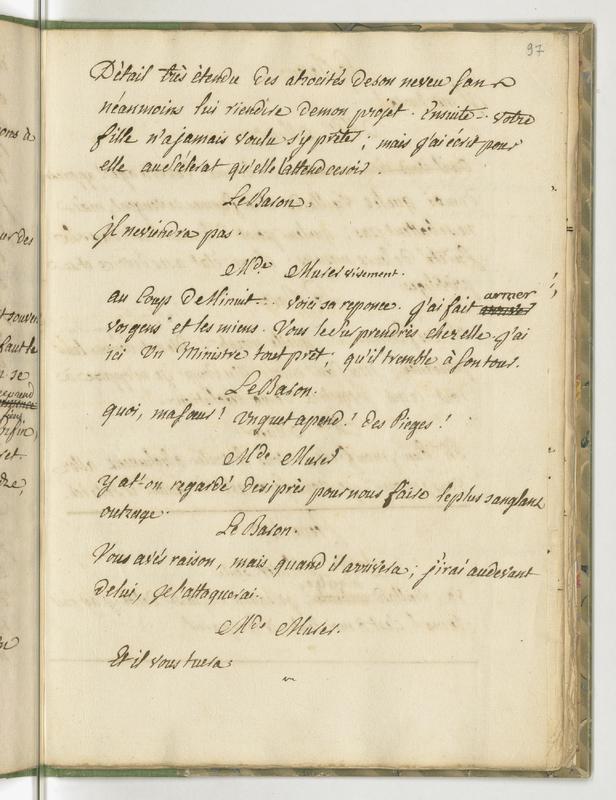 97
Détail très étendu des atrocités de son neveu sans
néanmoins lui rien dire de mon projet. Ensuite.. votre
fille n'a jamais voulu s'y prêter; mais j'ai écrit pour
elle au Scélerat qu'elle l'attend ce soir.
Le Baron.
il ne viendra pas.
Mde. Murer vivement.
au Coup de Minuit... voici sa reponce. J'ai fait armer
vos gens et les miens. Vous le surprendrés chez elle. J'ai
ici Un Ministre tout prêt; qu'il tremble à son tour.
Le Baron.
quoi, ma sœur! Un guet apend! des Pieges!
Mde Murer
Y at'on regardé de si près pour nous faire le plus sanglant
outrage.
Le Baron.
Vous avés raison, mais quand il arrivera; j'irai audevant
de lui, Je l'attaquerai.
Mde Murer.
Et il vous tuera.
ons à
ur des
t souver
faut le
n se
nfin,
ret